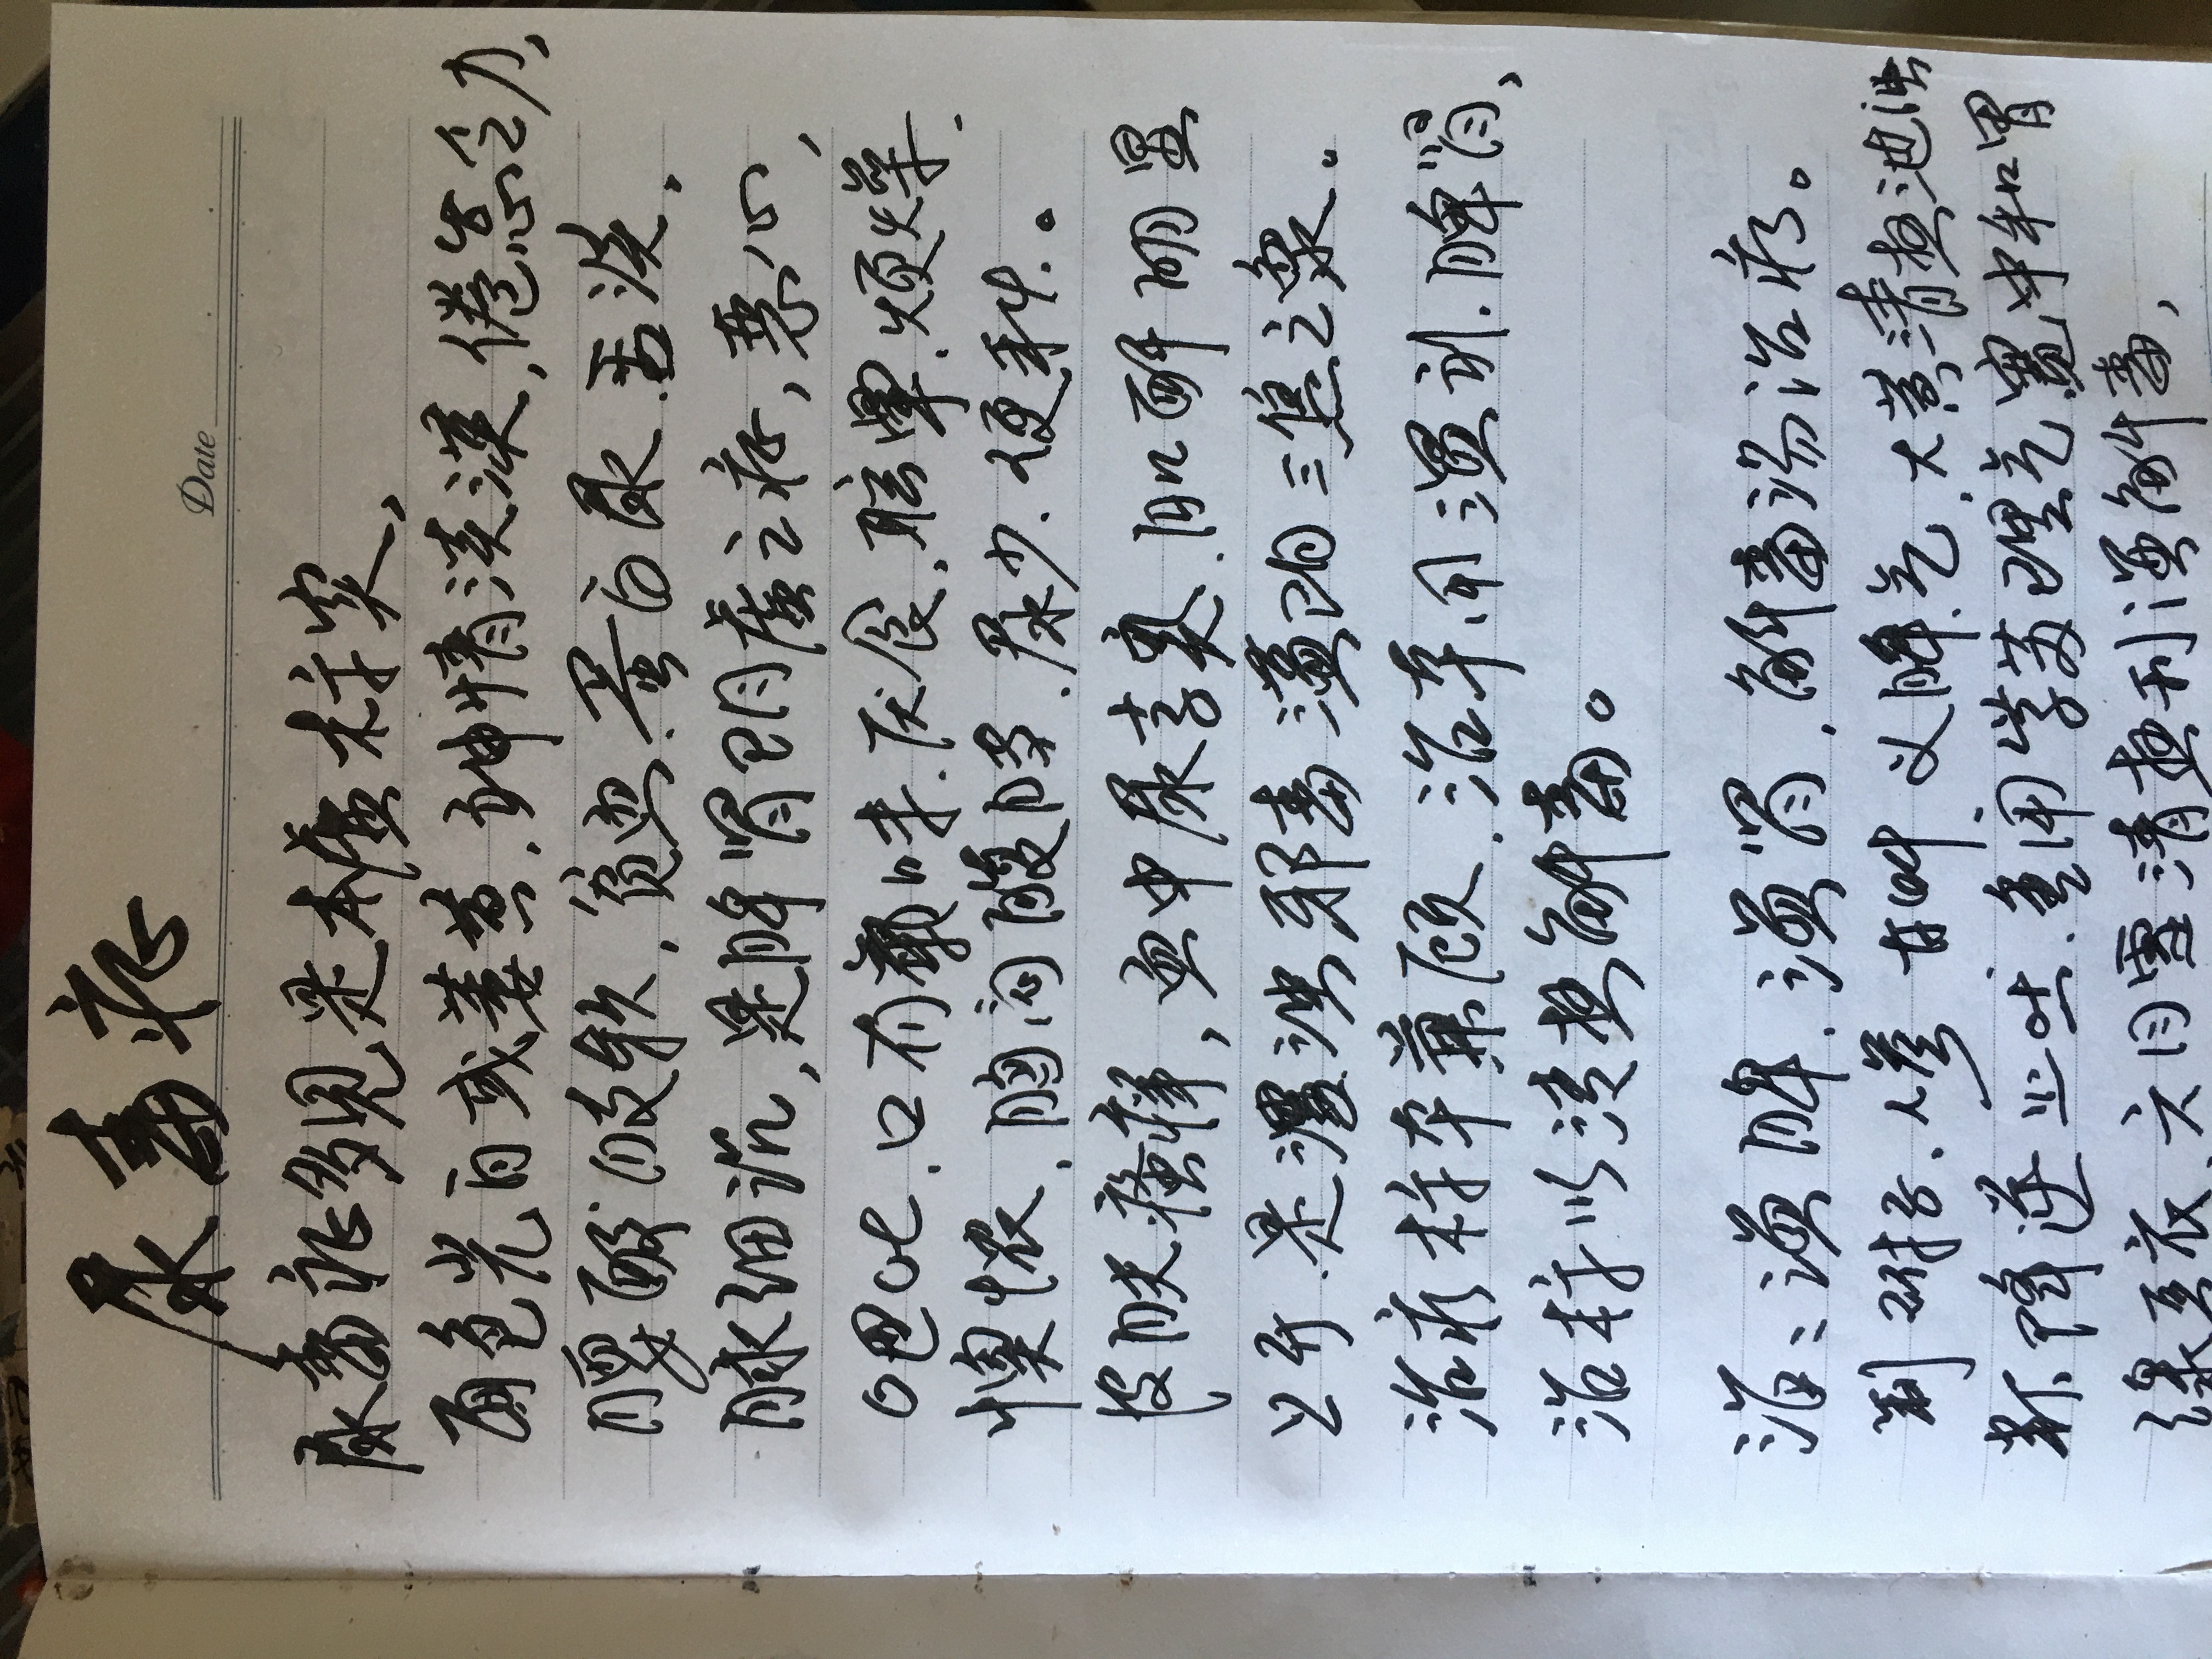 尿毒症
Date
尿毒症多见是本虚标实,
面色光白或萎黄.神情淡漠,倦怠乏力,
腰酸肢软,贫血.蛋白尿.舌淡.
脉细沉,是脾肾阴虚之症,恶心,
呕吐.口有氨味.厌食.眩晕.烦燥.
懊憹,胸闷腹胀.尿少.便秘。
皮肤瘙痒,血中尿素氮.肌酐明显
上升.是湿浊邪毒滞阻三焦之象。
治疗标本兼顾.治本用温补.脾肾,
治标以清热解毒。
治:温脾.温肾.解毒汤治疗。
制附子.人参 甘草 义脾气,大黄清热泄浊
半下降逆止吐.重用紫苏理气宽中和胃
绿豆衣.六月雪清热利湿解毒,